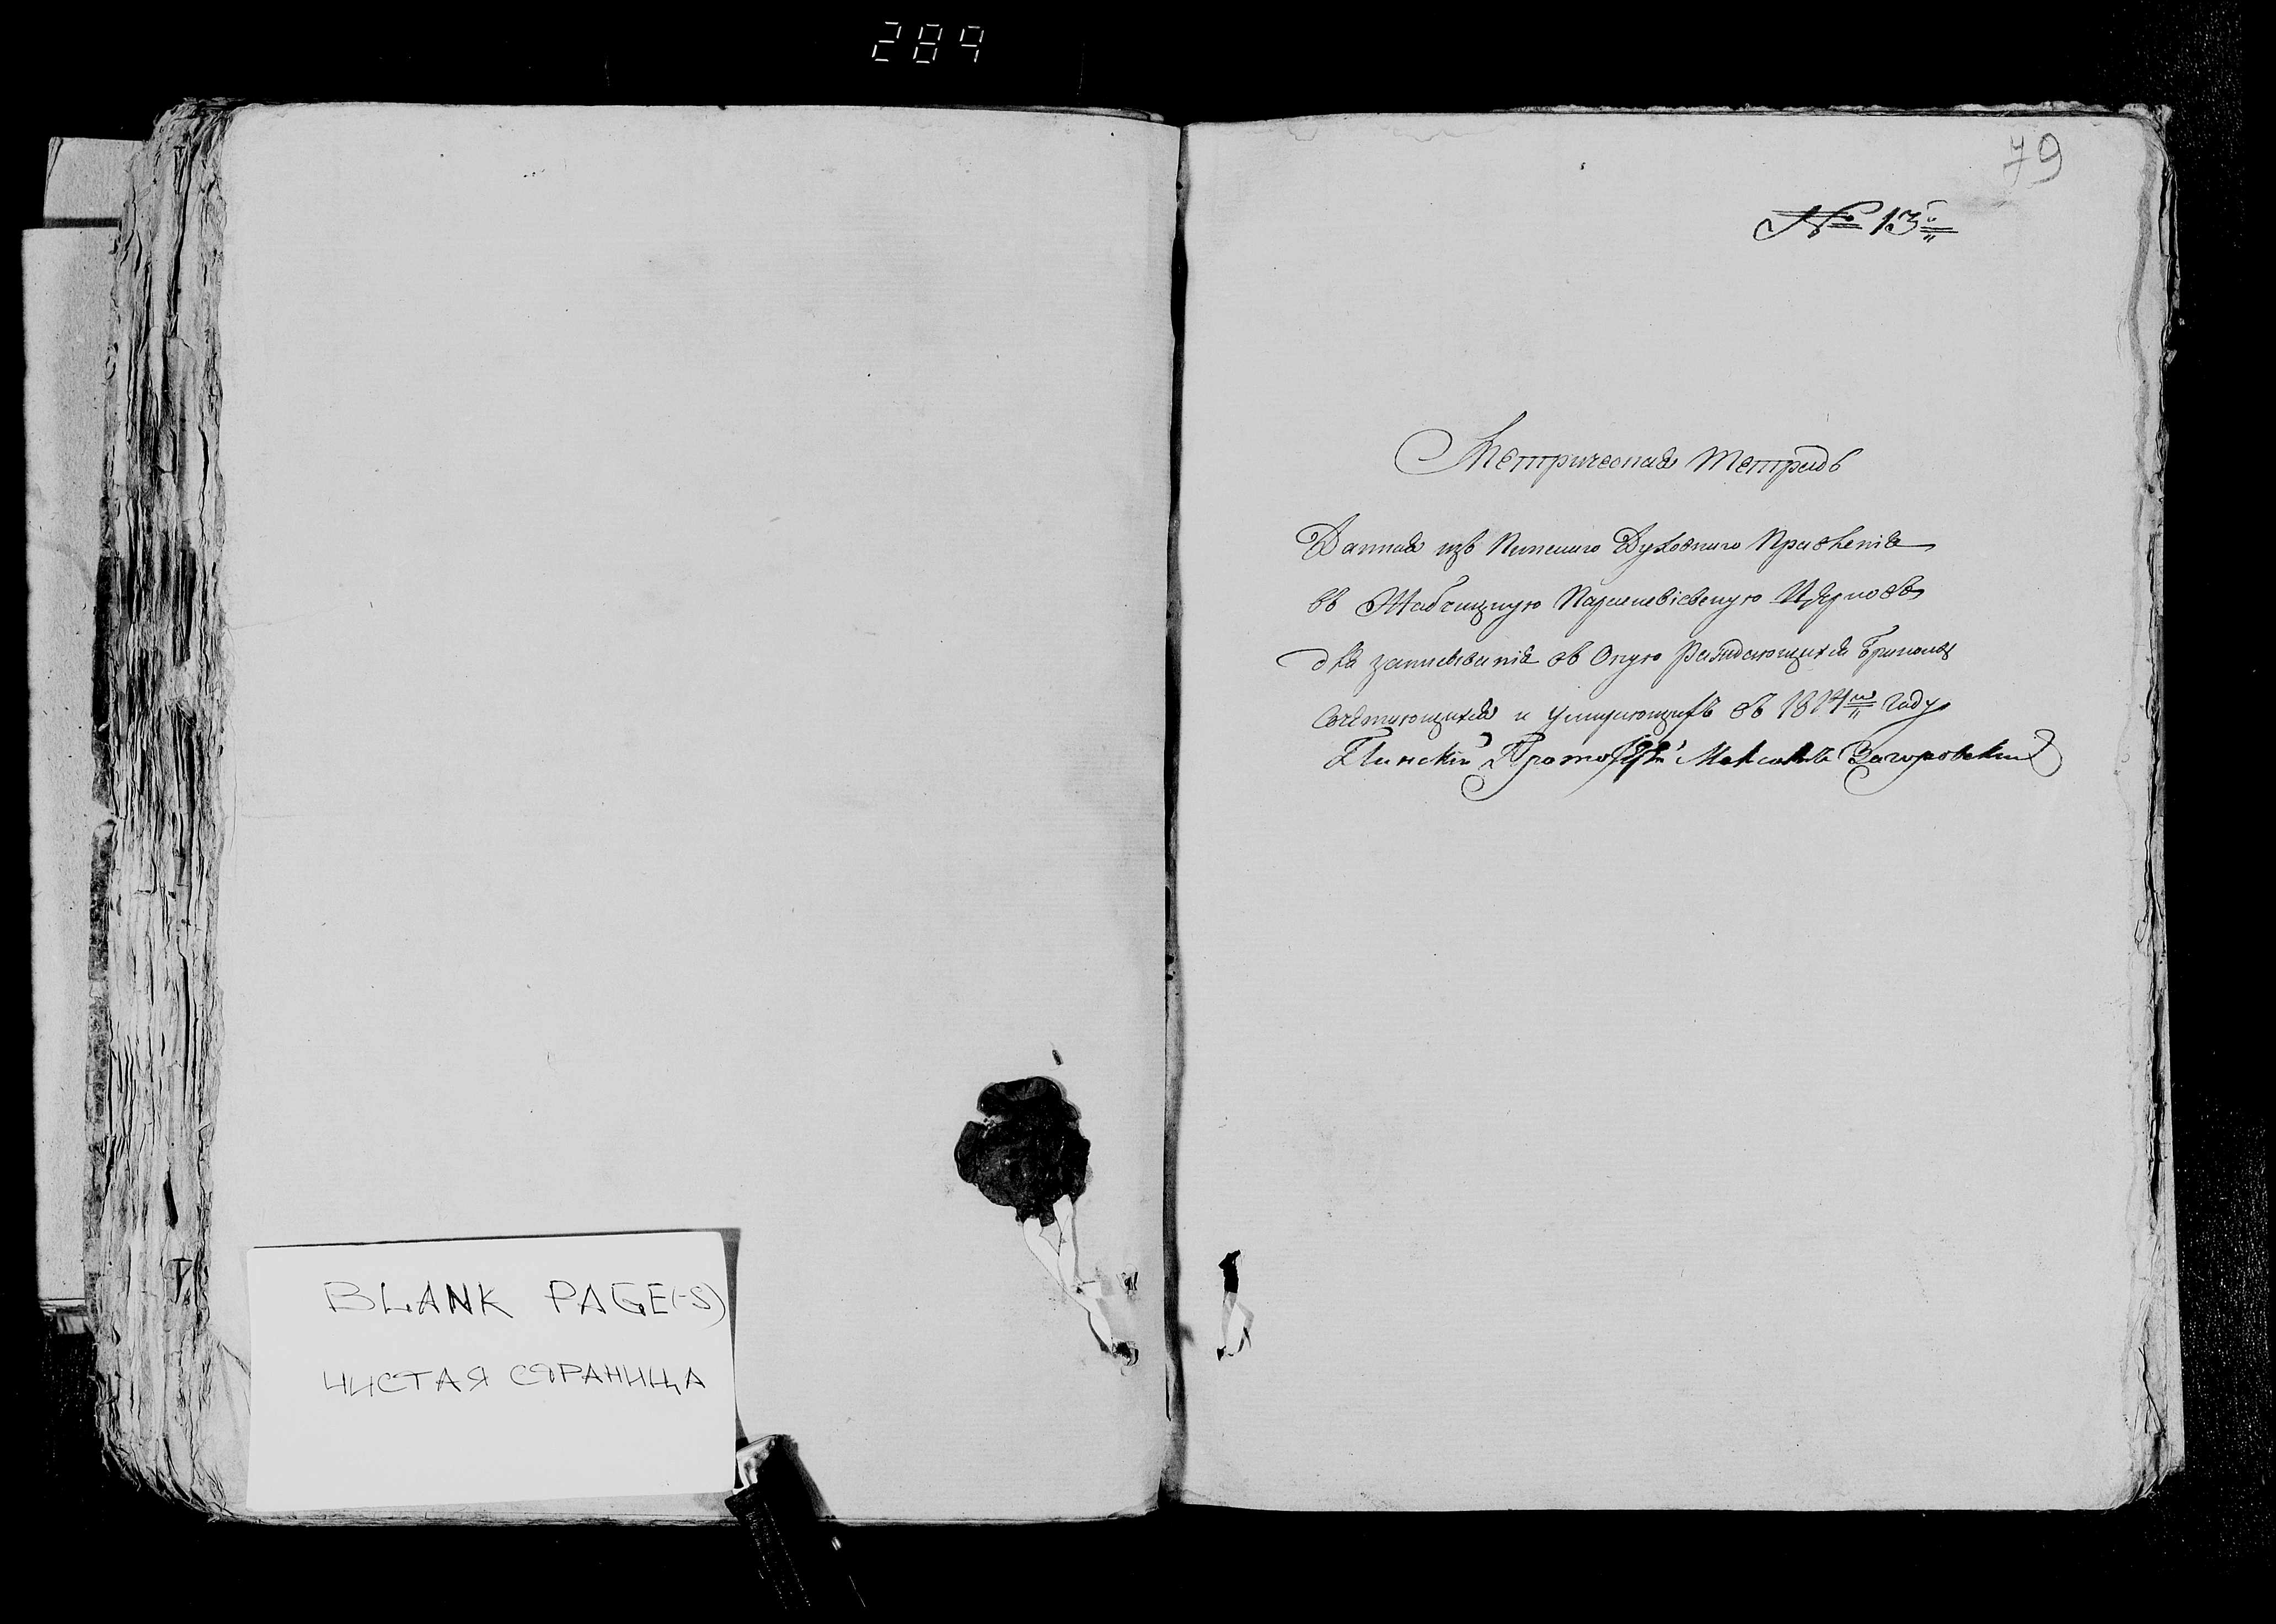 289
79
№ 13й
Метрическая тетрадь
Данная изъ Пинскаго Духовнаго Правленія
въ Жабчицкую Параскевіевскую Церковь
для записыванія въ Оную Раждающихся Бракомъ
Сочетающихся и умирающихъ въ 1814м году
Пинскій Протоіерей Загоровскій
BLANK PAGE(-S)
ЧИСТАЯ СТРАНИЦА